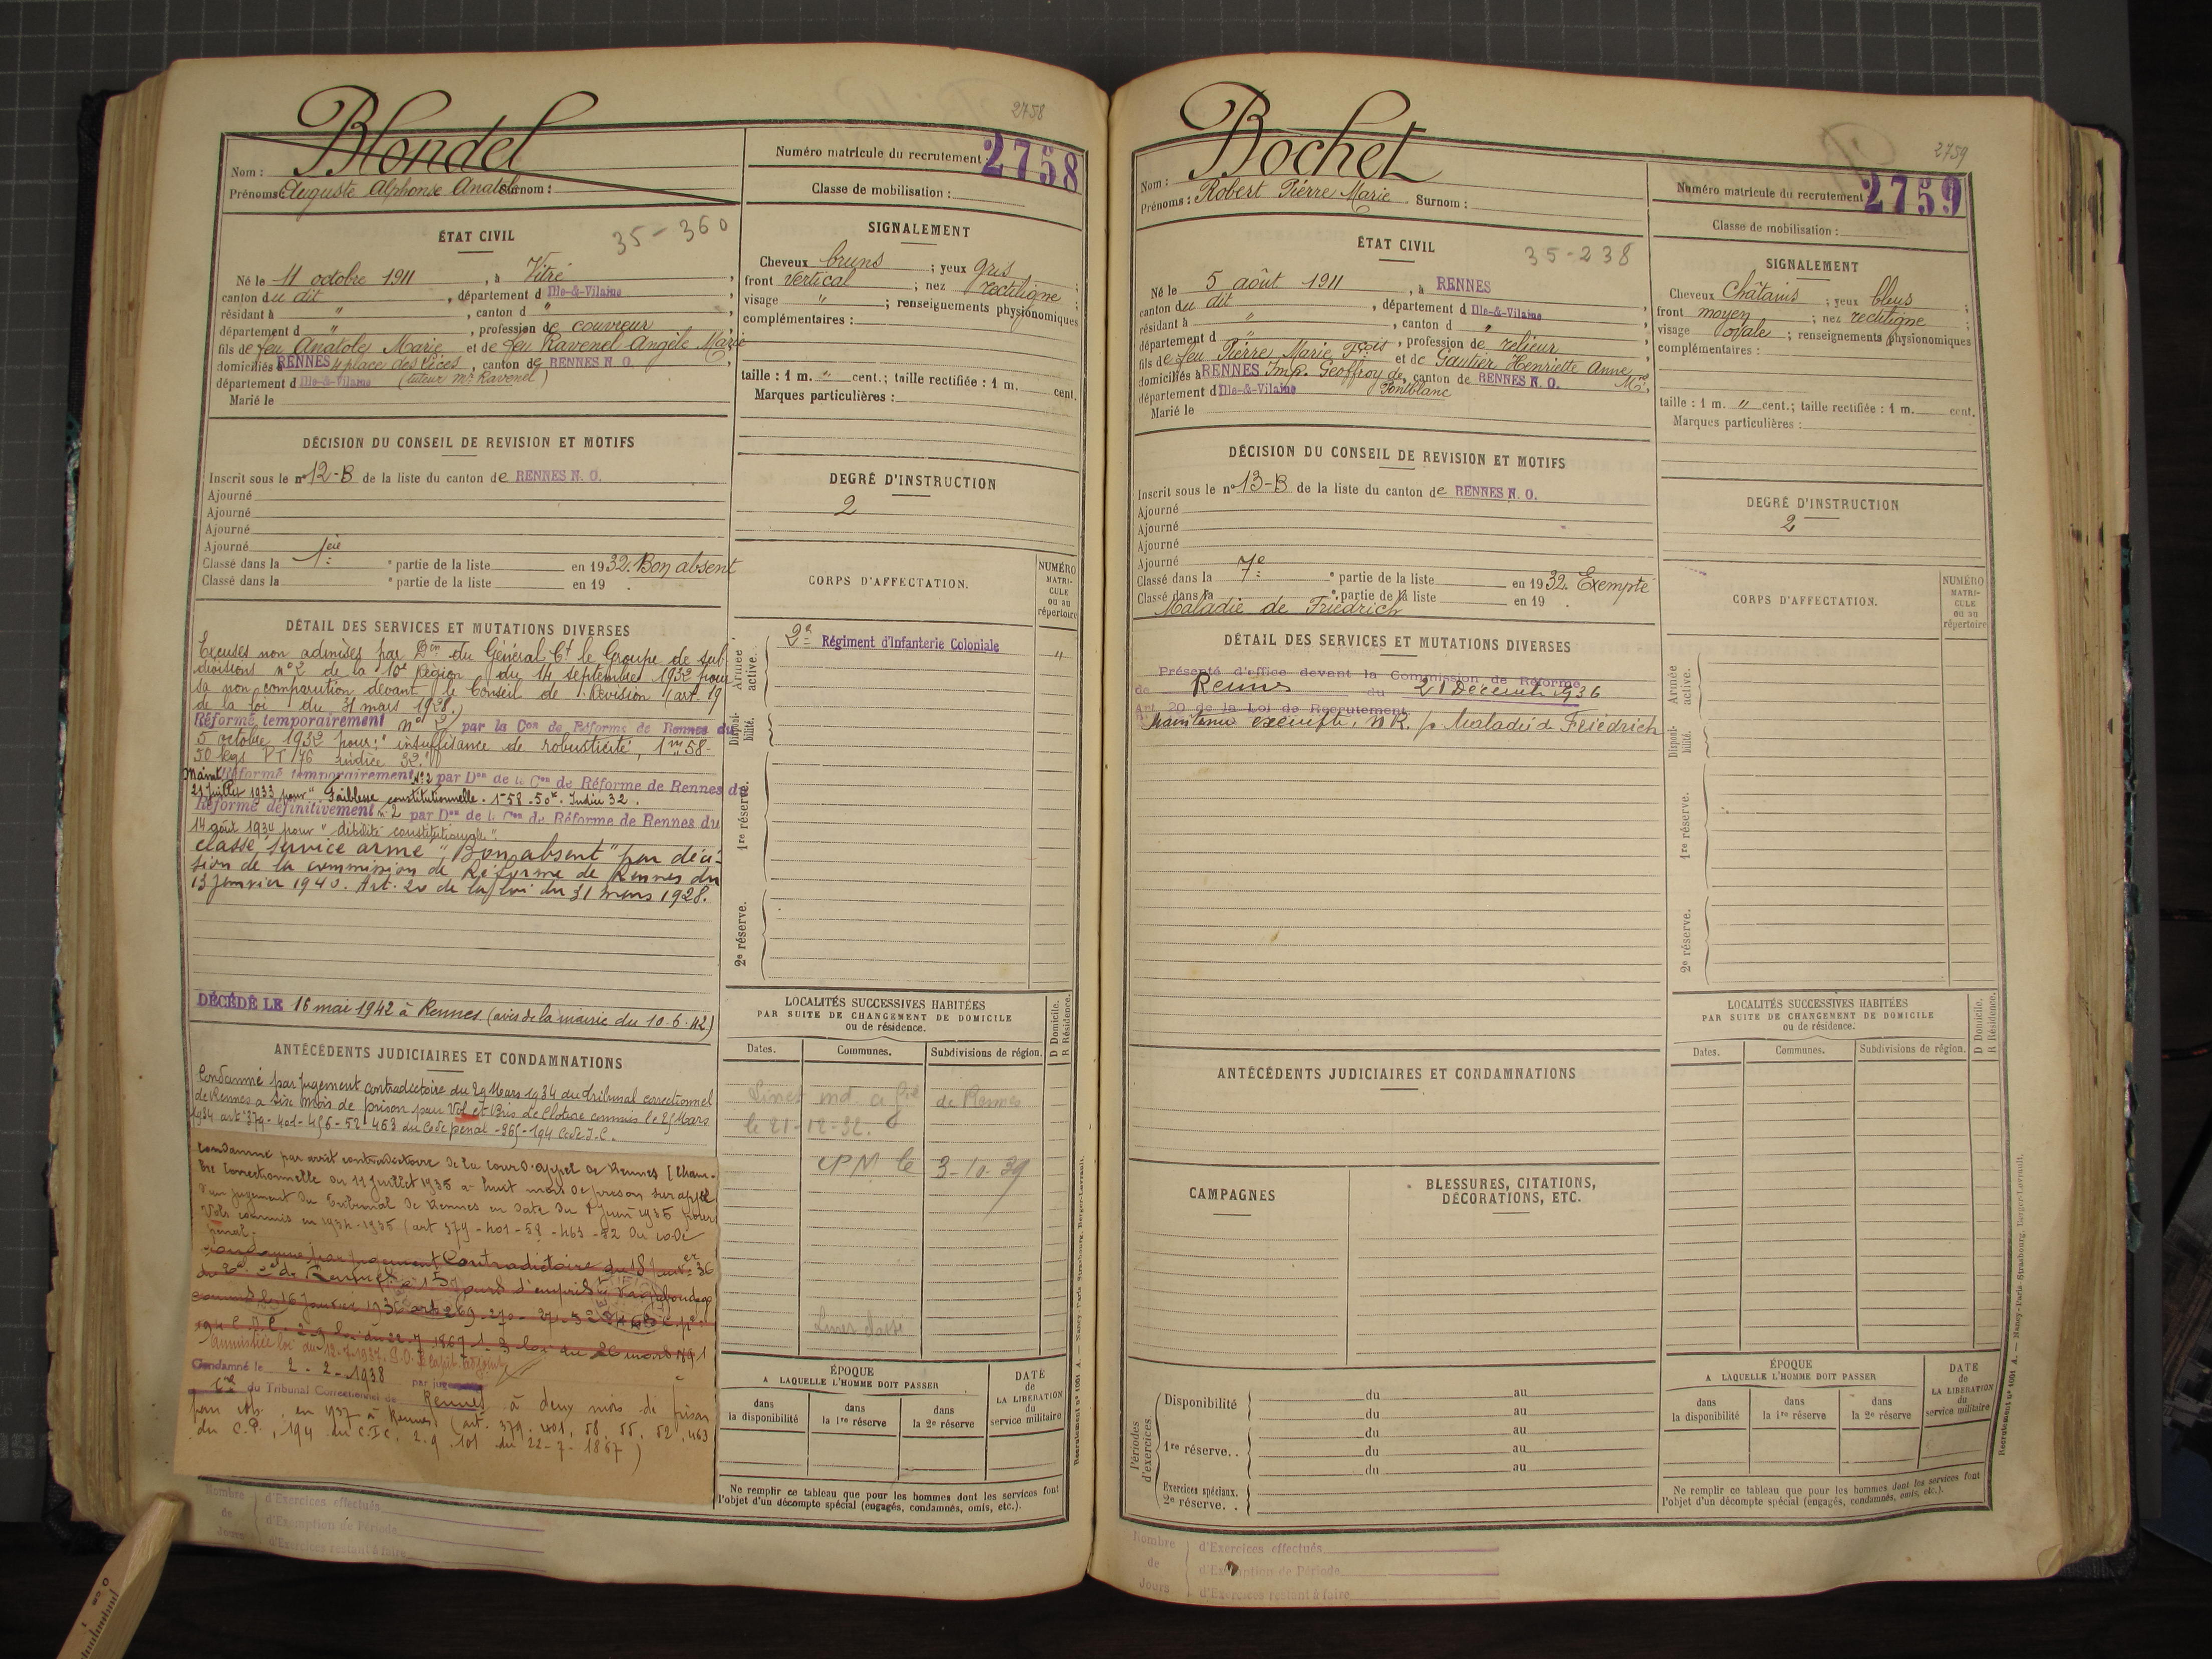 2758
Blondel
Nom :
Prénoms : Auguste Alphonse Anatole Surnom :
Numéro matricule du recrutement 2758
Classe de mobilisation :
ÉTAT CIVIL
35-360
Né le 11 octobre 1911, à Vitré,
canton du dit, département d Ille-&-Vilaine,
résidant à ", canton d ",
département d ", profession de couvreur,
fils de feu Anatole Marie et de feu Ravenel Angèle Marie
domiciliés à RENNES 4 place des Lices, canton de RENNES N. O.,
département d Ille-&-Vilaine (tuteur Mr Ravenel)
Marié le
SIGNALEMENT
Cheveux bruns ; yeux gris ;
front vertical ; nez rectiligne ;
visage " ; renseignements physionomiques
complémentaires :
taille : 1 m. " cent.; taille rectifiée : 1 m. cent.
Marques particulières :
DÉCISION DU CONSEIL DE REVISION ET MOTIFS
Inscrit sous le n° 12-B de la liste du canton de RENNES N. O.
Ajourné
Ajourné
Ajourné
Ajourné
Classé dans la 1ère ° partie de la liste en 1932. Bon absent
Classé dans la ° partie de la liste en 19 .
DEGRÉ D'INSTRUCTION
2
CORPS D'AFFECTATION.
NUMÉRO MATRI-CULE OU AU répertoire
Armée active.
2e Régiment d'Infanterie Coloniale "
Disponi-bilité.
1re réserve.
2e réserve.
DÉTAIL DES SERVICES ET MUTATIONS DIVERSES
Excuses non admises par Don du Général Ct le Groupe de sub
divisions n° 2 de la 10e Région du 14 septembre 1932 pour
sa non comparution devant le Conseil de Révision (art. 19
de la loi du 31 mars 1928.)
Réformé temporairement n° 2 par la Con de Réforme de Rennes du
5 octobre 1932 pour : "insuffisance de robusticité, 1m58-
50 kgs PT 76 indice 32."
Maint Réformé temporairement N° 2 par Don de la Con de Réforme de Rennes du
21 juillet 1933 pour "Faiblesse constitutionnelle. 1m58. 50k. Indice 32.
Réformé définitivement n° 2 par Don de la Con de Réforme de Rennes du
14 août 1934 pour "débilité constitutionnelle".
classé service armé "Bon absent" par déci-
sion de la commission de Réforme de Rennes du
13 janvier 1940. Art. 20 de la loi du 31 mars 1928.
DÉCÉDÉ LE 16 mai 1942 à Rennes (avis de la mairie du 10-6-42)
ANTÉCÉDENTS JUDICIAIRES ET CONDAMNATIONS
Condamné par jugement contradictoire du 29 Mars 1934 du tribunal correctionnel
de Rennes a six mois de prison pour Vol et Bris de Cloture commis le 25 Mars
1934 art 379-401-456-52 463 du Code pénal -365-194 Code I.C.
Condamné par arrêt contradictoire de la cour d'appel de Rennes (Cham-
bre correctionnelle du 11 juillet 1935 à huit mois de prison sur appel
d'un jugement du Tribunal de Rennes en date du 8 juin 1935 pour
Vols commis en 1934-1935 (art 379-401-58-463-52 du code
pénal.
Condamné par jugement Contradictoire du 18 janver 36
de Rennes à 15 jours d'empris vagabondage
commis le 16 janvier 1936 arts 269-270-271-52
194 C.I.C. 2-9 loi du 22-7-1867-1-3 loi du 26 mars 1891
Amnistiée loi du 12-7-1937.
Condamné le 2-2-1938 par jugement
du Tribunal Correctionnel de Rennes à deux mois de prison
pour vols, en 1937 à Rennes (art. 379. 401, 58, 55, 52, 463
du C.P., 194 du C.I.C. 2.9 loi du 22-7-1867)
LOCALITÉS SUCCESSIVES HABITÉES
PAR SUITE DE CHANGEMENT DE DOMICILE
ou de résidence.
D Domicile.
R Résidence.
Dates. Communes. Subdivisions de région.
de Rennes
le 21-12-32.
le 3-10-39
ÉPOQUE
A LAQUELLE L'HOMME DOIT PASSER
dans la disponibilité
dans la 1re réserve
dans la 2e réserve
DATE de LA LIBÉRATION du service militaire
Ne remplir ce tableau que pour les hommes dont les services font
l'objet d'un décompte spécial (engagés, condamnés, omis, etc.).
Recrutement n° 1001 A. — Nancy-Paris-Strasbourg, Berger-Levrault.
Nombre de Jours
d'Exercices effectués
d'Exemption de Période
d'Exercices restant à faire
2759
Bochet
Nom :
Prénoms : Robert Pierre Marie Surnom :
Numéro matricule du recrutement 2759
Classe de mobilisation :
ÉTAT CIVIL
35-238
Né le 5 août 1911, à RENNES
canton du dit, département d Ille-&-Vilaine,
résidant à ", canton d ",
département d ", profession de relieur,
fils de feu Pierre Marie Fçois et de Gautier Henriette Anne Mie,
domiciliés à RENNES Imp. Geoffroy de Pontblanc, canton de RENNES N. O.
département d Ille-&-Vilaine
Marié le
SIGNALEMENT
Cheveux Châtains ; yeux bleus ;
front moyen ; nez rectiligne ;
visage ovale ; renseignements physionomiques
complémentaires :
taille : 1 m. " cent.; taille rectifiée : 1 m. cent.
Marques particulières :
DÉCISION DU CONSEIL DE REVISION ET MOTIFS
Inscrit sous le n° 13-B de la liste du canton de RENNES N. O.
Ajourné
Ajourné
Ajourné
Ajourné
Classé dans la 7e ° partie de la liste en 1932. Exempté
Classé dans la ° partie de la liste en 19 .
Maladie de Friedrich
DEGRÉ D'INSTRUCTION
2
CORPS D'AFFECTATION.
NUMÉRO MATRI-CULE OU AU répertoire
Armée active.
Disponi-bilité.
1re réserve.
2e réserve.
DÉTAIL DES SERVICES ET MUTATIONS DIVERSES
Présenté d'office devant la Commission de Réforme
de Rennes du 21 Décembre 1936
Art. 20 de la Loi de Recrutement
Maintenu exempté, n R. p Maladie de Friedrich
ANTÉCÉDENTS JUDICIAIRES ET CONDAMNATIONS
CAMPAGNES
BLESSURES, CITATIONS,
DÉCORATIONS, ETC.
Périodes d'exercices
Disponibilité du au
du au
1re réserve. . du au
du au
du au
Exercices spéciaux.
2e réserve. .
LOCALITÉS SUCCESSIVES HABITÉES
PAR SUITE DE CHANGEMENT DE DOMICILE
ou de résidence.
D Domicile.
R Résidence.
Dates. Communes. Subdivisions de région.
ÉPOQUE
A LAQUELLE L'HOMME DOIT PASSER
dans la disponibilité
dans la 1re réserve
dans la 2e réserve
DATE de LA LIBÉRATION du service militaire
Ne remplir ce tableau que pour les hommes dont les services font
l'objet d'un décompte spécial (engagés, condamnés, omis, etc.).
Recrutement n° 1001 A. — Nancy-Paris-Strasbourg, Berger-Levrault.
Nombre de Jours
d'Exercices effectués
d'Exemption de Période
d'Exercices restant à faire